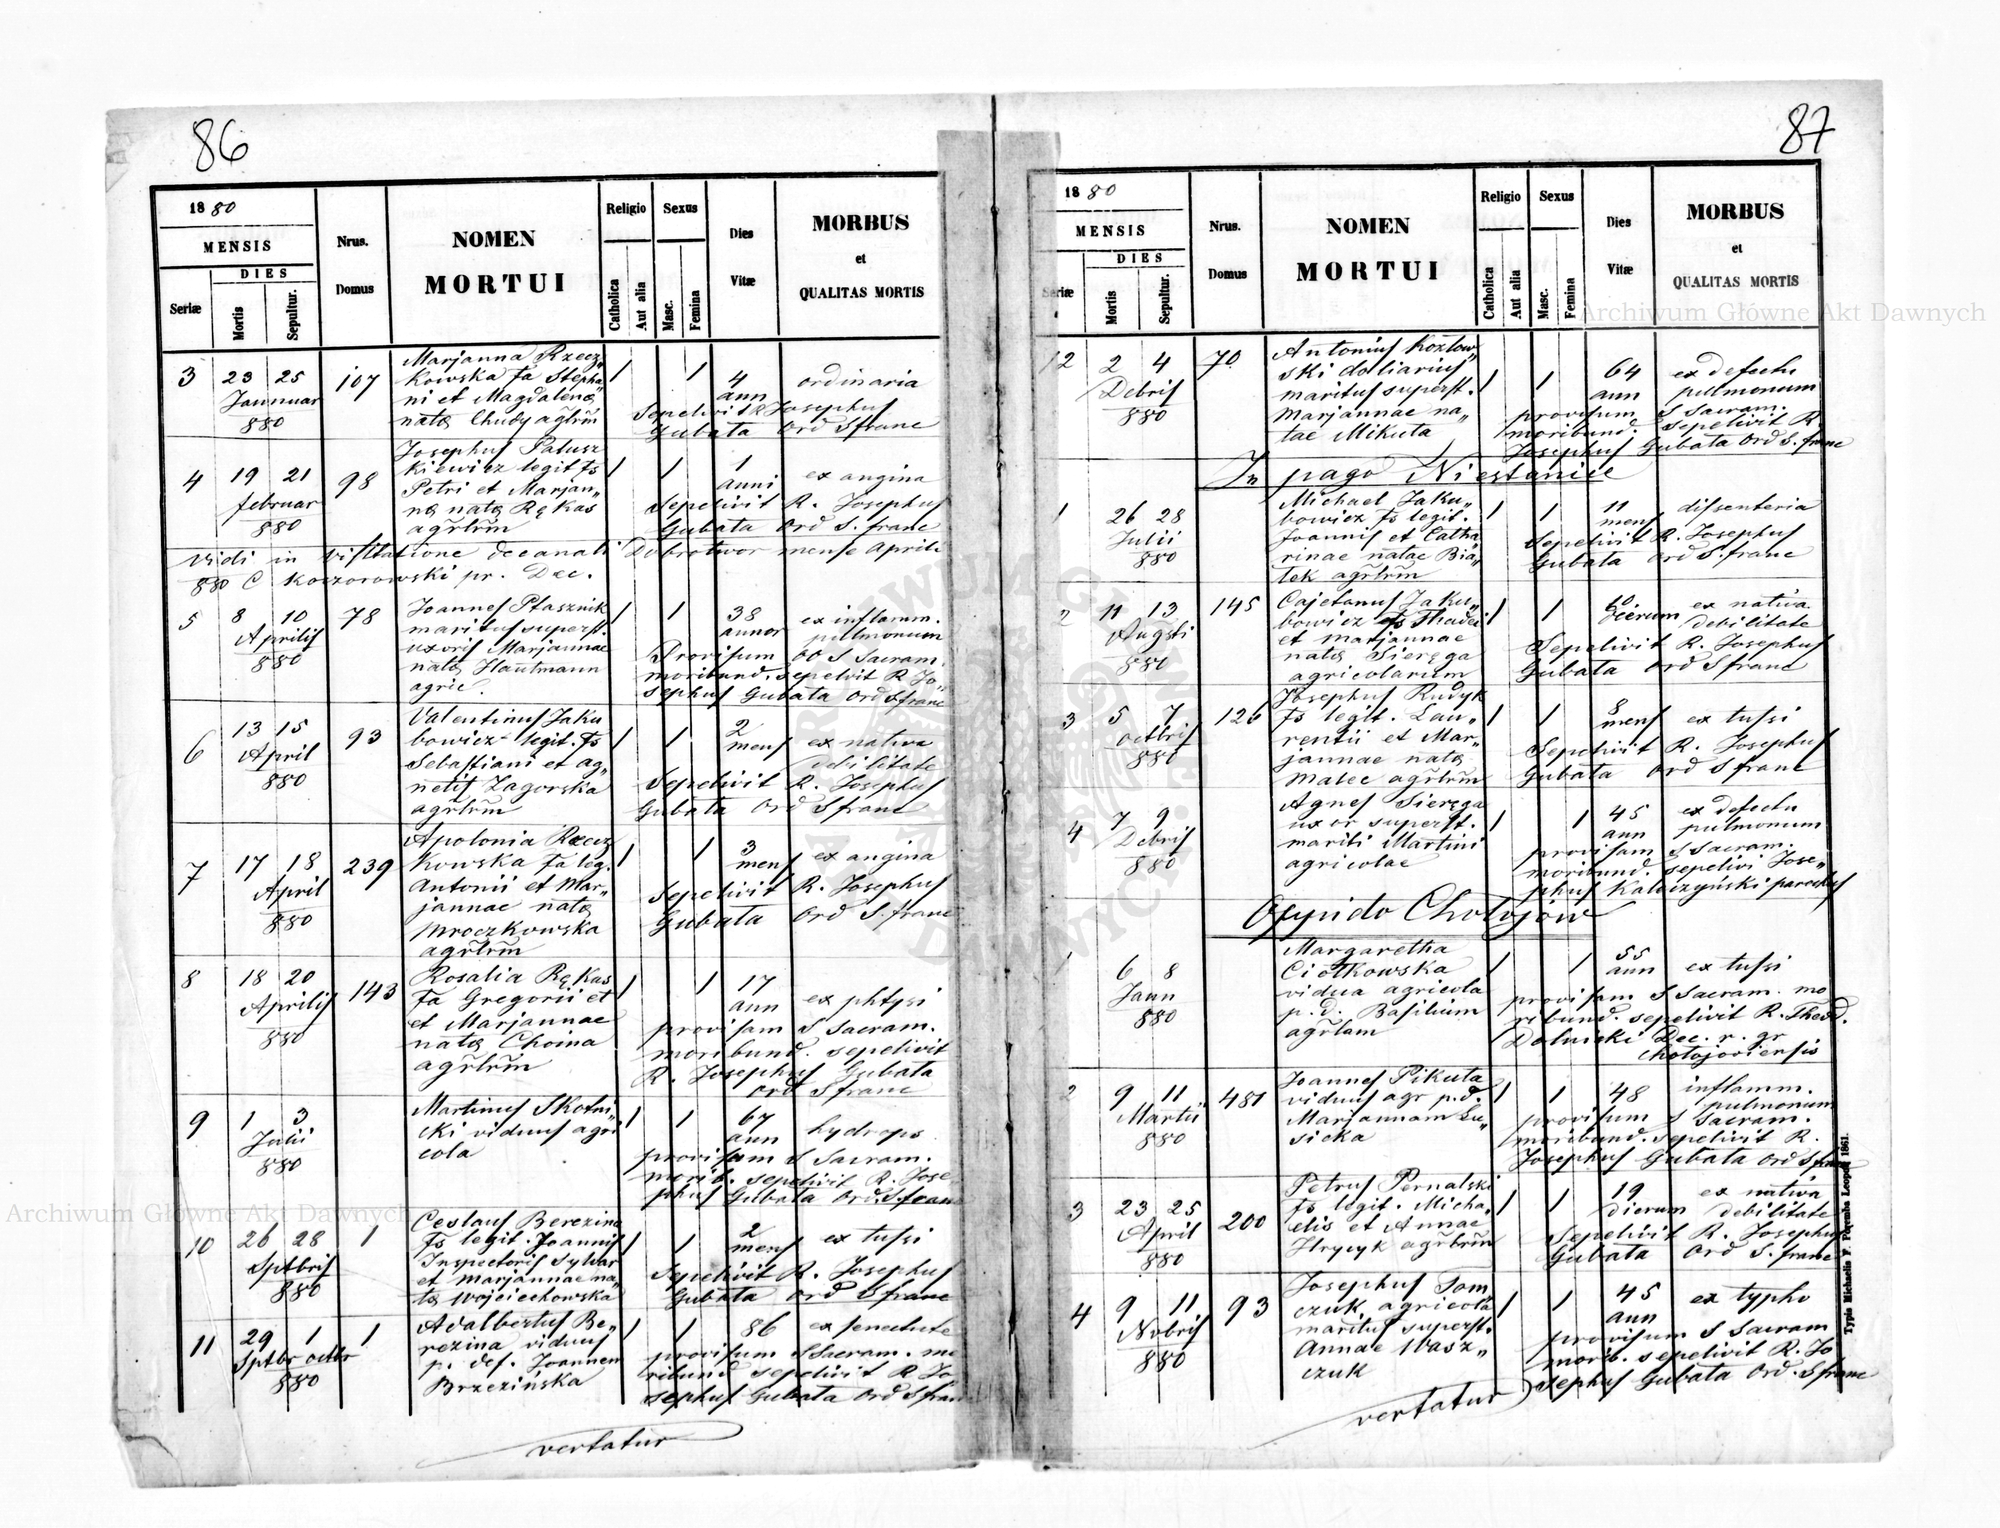 86
1880
MENSIS
DIES
Seriæ
Mortis
Sepultur.
Nrus.
Domus
NOMEN
MORTUI
Religio
Catholica
Aut alia
Sexus
Masc.
Femina
Dies
Vitæ
MORBUS
et
QUALITAS MORTIS
3 23 25 Jannuar 880 107
Marjanna Rzecz„
kowska fa Stepha„
ni et Magdalenę
natę Chudy agrlrm
1 1 4 ann ordinaria
Sepelivit R Josephus
Gubata Ord S franc
4 19 21 februar 880 98
Josephus Palusz
kiewicz legit fs
Petri et Marjan„
nę natę Rękas
agrlrm
1 1 1 anni ex angina
Sepelivit R. Josephus
Gubata Ord S. franc
Vidi in visitatione decanali Dobrotwor mense Aprili
880 C Koczorowski pr. Dec.
5 8 10 Aprilis 880 78
Joannes Ptasznik
maritus superst.
uxoris Marjannae
natę Hautmann
agric.
1 1 38 annor ex inflamm.
pulmonum
Provisum OO S Sacram.
moribund. sepelvit R Jo„
sephus Gubata Ord S franc
6 13 15 April 880 93
Valentinus Jaku
bowicz legit. fs
Sebastiani et ag„
netis Zagorska
agrlrm
1 1 2 mens ex nativa
debilitate
Sepelivit R. Josephus
Gubata Ord S franc
7 17 18 April 880 239
Apolonia Rzecz
kowska fa leg.
Antonii et Mar„
jannae natę
Mroczkowska
agrlrm
1 1 3 mens ex angina
Sepelivit R. Josephus
Gubata Ord S. franc
8 18 20 Aprilis 880 143
Rosalia Rękas
fa Gregorii et
et Marjannae
natę Choina
agrlrm
1 1 17 ann ex phtysi
provisam S Sacram.
moribund. sepelivit
R. Josephus Gubata
Ord S franc
9 1 3 Julii 880
Martinus Skotni„
cki viduus agri
cola
1 1 67 ann hydrops
provisum S Sacram.
morib. sepelivit R. Jose„
phus Gubata Ord. S. franc
10 26 28 Sptbris 880 1
Ceslaus Berezina
fs legit. Joannis
Inspectoris Sylvar
et Marjannae na„
tę Wojciechowska
1 1 2 mens ex tussi
Sepelivit R. Josephus
Gubata Ord S franc
11 29 1 Sptbr octbr 880 1
Adalbertus Be„
rezina viduus
p. def. Joannem
Brzezińska
1 1 86 ex senectute
provisum S Sacram. mo
ribund sepelivit R Jo
sephus Gubata Ord S franc
vertatur
87
1880
MENSIS
DIES
Seriæ
Mortis
Sepultur.
Nrus.
Domus
NOMEN
MORTUI
Religio
Catholica
Aut alia
Sexus
Masc.
Femina
Dies
Vitæ
MORBUS
et
QUALITAS MORTIS
12 2 4 Debris 880 70
Antonius Kozłow„
ski doliarius
maritus superst.
Marjannae na„
tae Mikuta
1 1 64 ann ex defectu
pulmonum
provisum S Sacram.
moribund. sepelivit R
Josephus Gubata Ord S. franc
In pago Niestanice
1 26 28 Julii 880
Michael Jaku„
bowicz fs legit.
Joannis et Catha
rinae natae Bia„
łek agrlrm
1 1 11 mens dissenteria
Sepelivit R. Josephus
Gubata Ord S. franc
2 11 13 Augsti 880 145
Cajetanus Jaku„
bowicz fs Thadei
et Marjannae
natę Sieręga
agricolarum
1 1 dierum ex nativa
debilitate
Sepelivit R. Josephus
Gubata Ord S franc
3 5 7 octbris 880 126
Josephus Rudyk
fs legit. Lau„
rentii et Mar„
jannae natę
Malec agrlrm
1 1 8 mens ex tussi
Sepelivit R. Josephus
Gubata Ord S franc
4 7 9 Debris 880
Agnes Sieręga
uxor superst.
mariti Martini
agricolae
1 1 45 ann ex defectu
pulmonum
provisam S Sacram.
moribund. sepelivi Jose„
phus Kaluczyński parochus
Oppido Chołojów
1 6 8 Jann 880
Margaretha
Ciołkowska
vidua agricola
p. d. Basilium
agrlam
1 1 55 ann ex tussi
provisam S Sacram. mo
ribund. sepelivit R. Theod.
Dolnicki Dec. r. gr
Chołojoviensis
2 9 11 Martii 880 481
Joannes Pikuta
viduus agr p. d.
Marjannam Łu„
sicka
1 1 48 inflamm.
pulmonum
provisum S Sacram.
moribund. sepelivit R.
Josephus Gubata Ord S franc
3 23 25 April 880 200
Petrus Pernalski
fs legit. Micha„
elis et Annae
Hrycyk agrlrm
1 1 19 dierum ex nativa
debilitate
Sepelivit R. Josephus
Gubata Ord S. franc
4 9 11 Novbris 880 93
Josephus Tom
czuk agricola
maritus superst.
Annae Wasz„
czuk
1 1 45 ann ex typho
provisum S Sacram
morib. sepelivit R. Jo
sephus Gubata Ord. S franc
vertatur
Typis Michaelis F. Poremba Leopoli 1861.
Archiwum Główne Akt Dawnych
Archiwum Główne Akt Dawnych